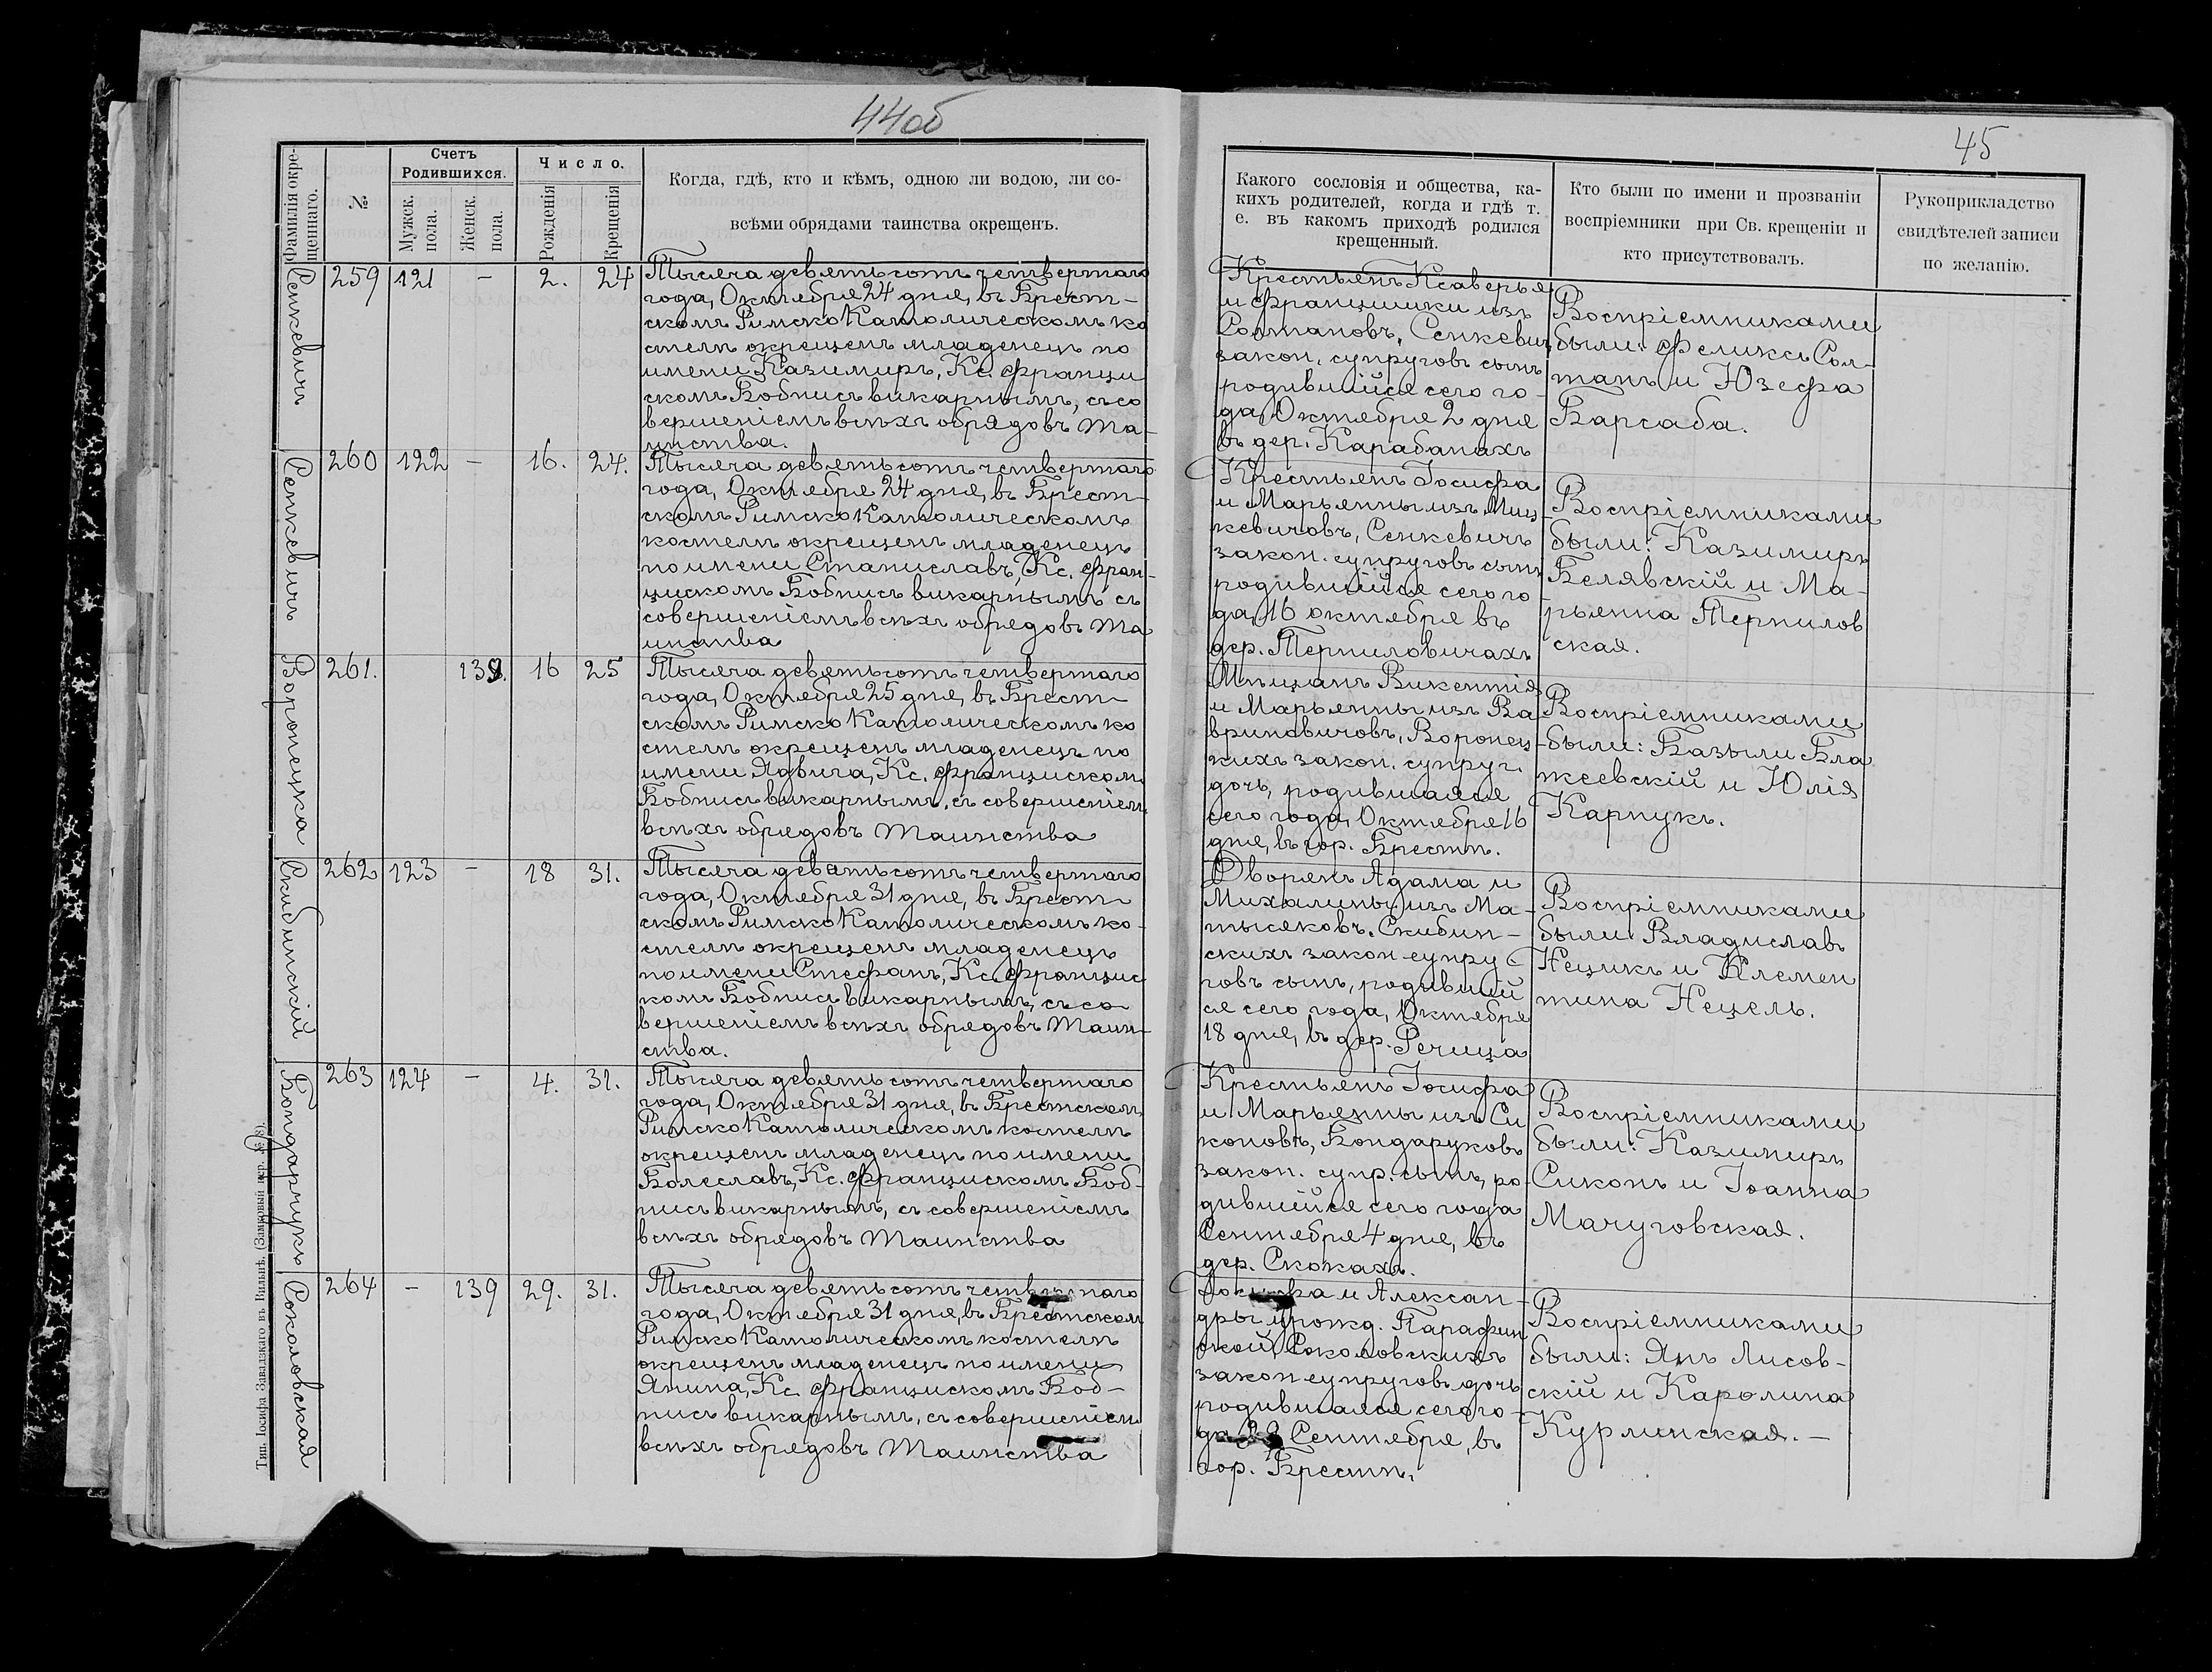 44об
45
Фамилія окре-
щеннаго.
№
Счетъ
Родившихся.
Мужск.
пола.
Женск.
пола.
Число.
Рожденія
Крещенія
Когда, гдѣ, кто и кѣмъ, одною ли водою, ли со-
всѣми обрядами таинства окрещенъ.
Какого сословія и общества, ка-
кихъ родителей, когда и гдѣ т.
е. въ какомъ приходѣ родился
крещенный.
Кто были по имени и прозванію
воспріемники при Св. крещеніи и
кто присутствовалъ.
Рукоприкладство
свидѣтелей записи
по желанію.
Сенкевичъ
259 121 — 2. 24
Тысяча девятьсотъ четвертаго
года, Октября 24 дня, въ Брест-
скомъ Римско Католическомъ ко
стелѣ окрещенъ младенецъ по
имени Казимиръ, Кс. Францы
скомъ Бобнисъ викарнымъ, съ со
вершеніемъ всѣхъ обрядовъ Та-
инства.
Крестьянъ Ксаверья
и Францишки изъ
Солтановъ, Сенкевич
закон. супруговъ сынъ
родившійся сего го-
да, Октября 2 дня
въ дер. Карабанахъ
Воспріемниками
были: Феликсъ Сол-
танъ и Юзефа
Барсаба.
Сенкевичъ
260 122 — 16. 24.
Тысяча девятьсотъ четвертаго
года, Октября 24 дня, въ Брест-
скомъ Римско Католическомъ
костелѣ окрещенъ младенецъ
по имени Станиславъ, Кс. Фран-
цискомъ Бобнисъ викарнымъ съ
совершеніемъ всѣхъ обрядовъ Та
инства
Крестьянъ Іосифа
и Марьянны изъ Миц-
кевичовъ, Сенкевичъ
закон. супруговъ сынъ
родившійся сего го
да, 16 октября въ
дер. Терпиловичахъ
Воспріемниками
были: Казимиръ
Белявскій и Ма-
рьянна Терпилов
ская.
Воронецка
261. 138. 16 25
Тысяча девятьсотъ четвертаго
года, Октября 25 дня, въ Брест-
скомъ Римско Католическомъ ко
стелѣ окрещенъ младенецъ по
имени Ядвига, Кс. Францискомъ
Бобнисъ викарнымъ, съ совершеніем
всѣхъ обрядовъ Таинства
Мѣщанъ Викентія
и Марьянны изъ Ва-
вриновичовъ, Воронец-
кихъ закон. супруг.
дочь, родившаяся
сего года, Октября 16
дня, въ гор. Брестѣ.
Воспріемниками
были: Базыли Бла
жеевскій и Юлія
Карпукъ.
Скибинскій
262 123 — 18 31.
Тысяча девятьсотъ четвертаго
года, Октября 31 дня, въ Брест-
скомъ Римско Католическомъ ко-
стелѣ окрещенъ младенецъ
по имени Стефанъ, Кс. Францис
комъ Бобнисъ викарнымъ, съ со-
вершеніемъ всѣхъ обрядовъ Таин-
ства.
Дворянъ Адама и
Михалины изъ Ма-
тысяковъ, Скибин-
скихъ закон супру
говъ сынъ, родивший
ся сего года, Октября
18 дня, въ дер. Речица
Воспріемниками
были: Владиславъ
Нецикъ и Клемен
тина Нецель.
Бондарчукъ
263 124 — 4. 31.
Тысяча девятьсотъ четвертаго
года, Октября 31 дня, въ Брестском
Римско Католическомъ костелѣ
окрещенъ младенецъ по имени
Болеславъ, Кс. Францискомъ Боб-
нисъ викарнымъ, съ совершеніемъ
всѣхъ обрядовъ Таинства
Крестьянъ Іосифа
и Марьянны изъ Си
коновъ, Бондаруковъ
закон. супр. сынъ, ро-
дившійся сего года
Сентября 4 дня, въ
дер. Скокахъ.
Воспріемниками
были: Казимиръ
Сиконъ и Іоанна
Мачуговская.
Соколовская
264 — 139 29. 31.
Тысяча девятьсотъ четвертаго
года, Октября 31 дня, въ Брестском
Римско Католическомъ костелѣ
окрещенъ младенецъ по имени
Янина, Кс. Францискомъ Боб-
нисъ викарнымъ, съ совершеніем
всѣхъ обрядовъ Таинства
Іосифа и Алексан-
дры урожд. Парафин
ской, Соколовскихъ
закон супруговъ дочь
родившаяся сего го-
да 29 Сентября, въ
гор. Брестѣ.
Воспріемниками
были: Янъ Лисов-
скій и Каролина
Курлинская. —
Тип. Іосифа Завадзкаго въ Вильнѣ. (Замковый пер. № 8).